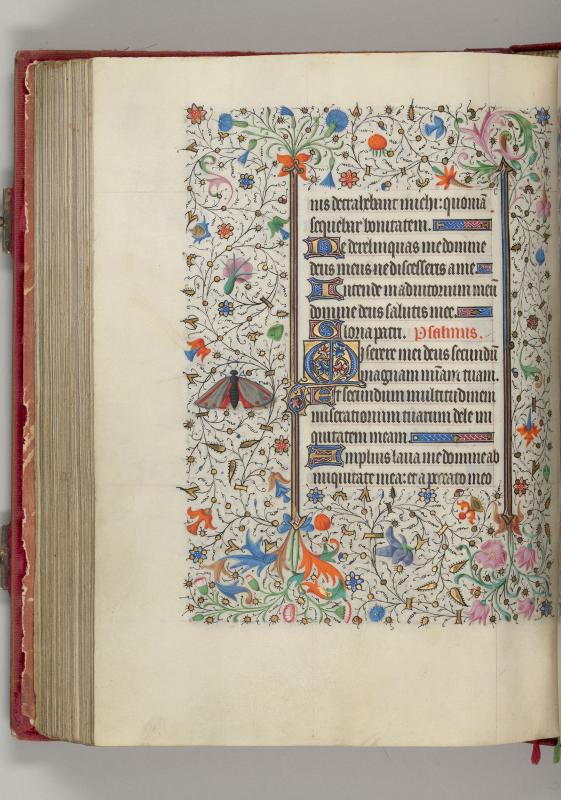 nis detrahebant michi: quoniā
sequebar bonitatem.
Ne derelinquas me domine
deus meus ne discesseris a me
Intende in adiutorium meū
domine deus salutis mee.
Gloria patri. Psalmus.
Miserere mei deus secundū
magnam mīam tuam.
Et secundum multitudinem
miserationum tuarum dele ini
quitatem meam
Amplius laua me domine ab
iniquitate mea: et a peccato meo